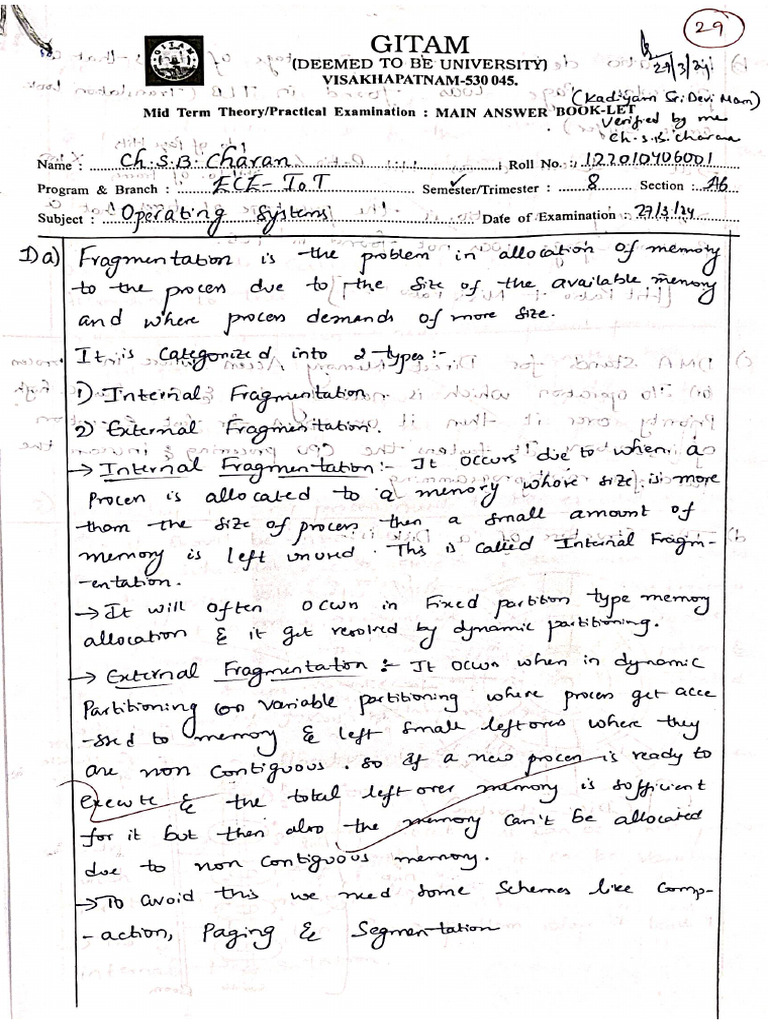 29
GITAM
(DEEMED TO BE UNIVERSITY)
VISAKHAPATNAM-530 045.
29/3/24
(Kadiyam Sri Devi Mam)
Mid Term Theory/Practical Examination : MAIN ANSWER BOOK-LET
Verified by me
Ch.S.B. Charan
Name : Ch.S.B. Charan Roll No. : 122010406001
Program & Branch : ECE-IoT Semester/Trimester : 8 Section : A6
Subject : Operating Systems Date of Examination : 27/3/24
1) a) Fragmentation is the problem in allocation of memory
to the process due to the size of the available memory
and where process demands of more size.
It is categorized into 2 types:-
1) Internal Fragmentation.
2) External Fragmentation.
→ Internal Fragmentation:- It occurs due to when a
Process is allocated to a memory whose size is more
than the size of process then a small amount of
memory is left unused. This is called Internal Fragm-
-entation.
→ It will often occurs in Fixed partition type memory
allocation & it get resolved by dynamic partitioning.
→ External Fragmentation :- It occurs when in dynamic
Partitioning (or) variable partitioning where process get acce
-ssed to memory & left small leftovers where they
are non contiguous. so if a new process is ready to
execute & the total left over memory is sufficient
for it but then also the memory can't be allocated
due to non contiguous memory.
→ To avoid this we need some schemes like Comp-
-action, Paging & Segmentation